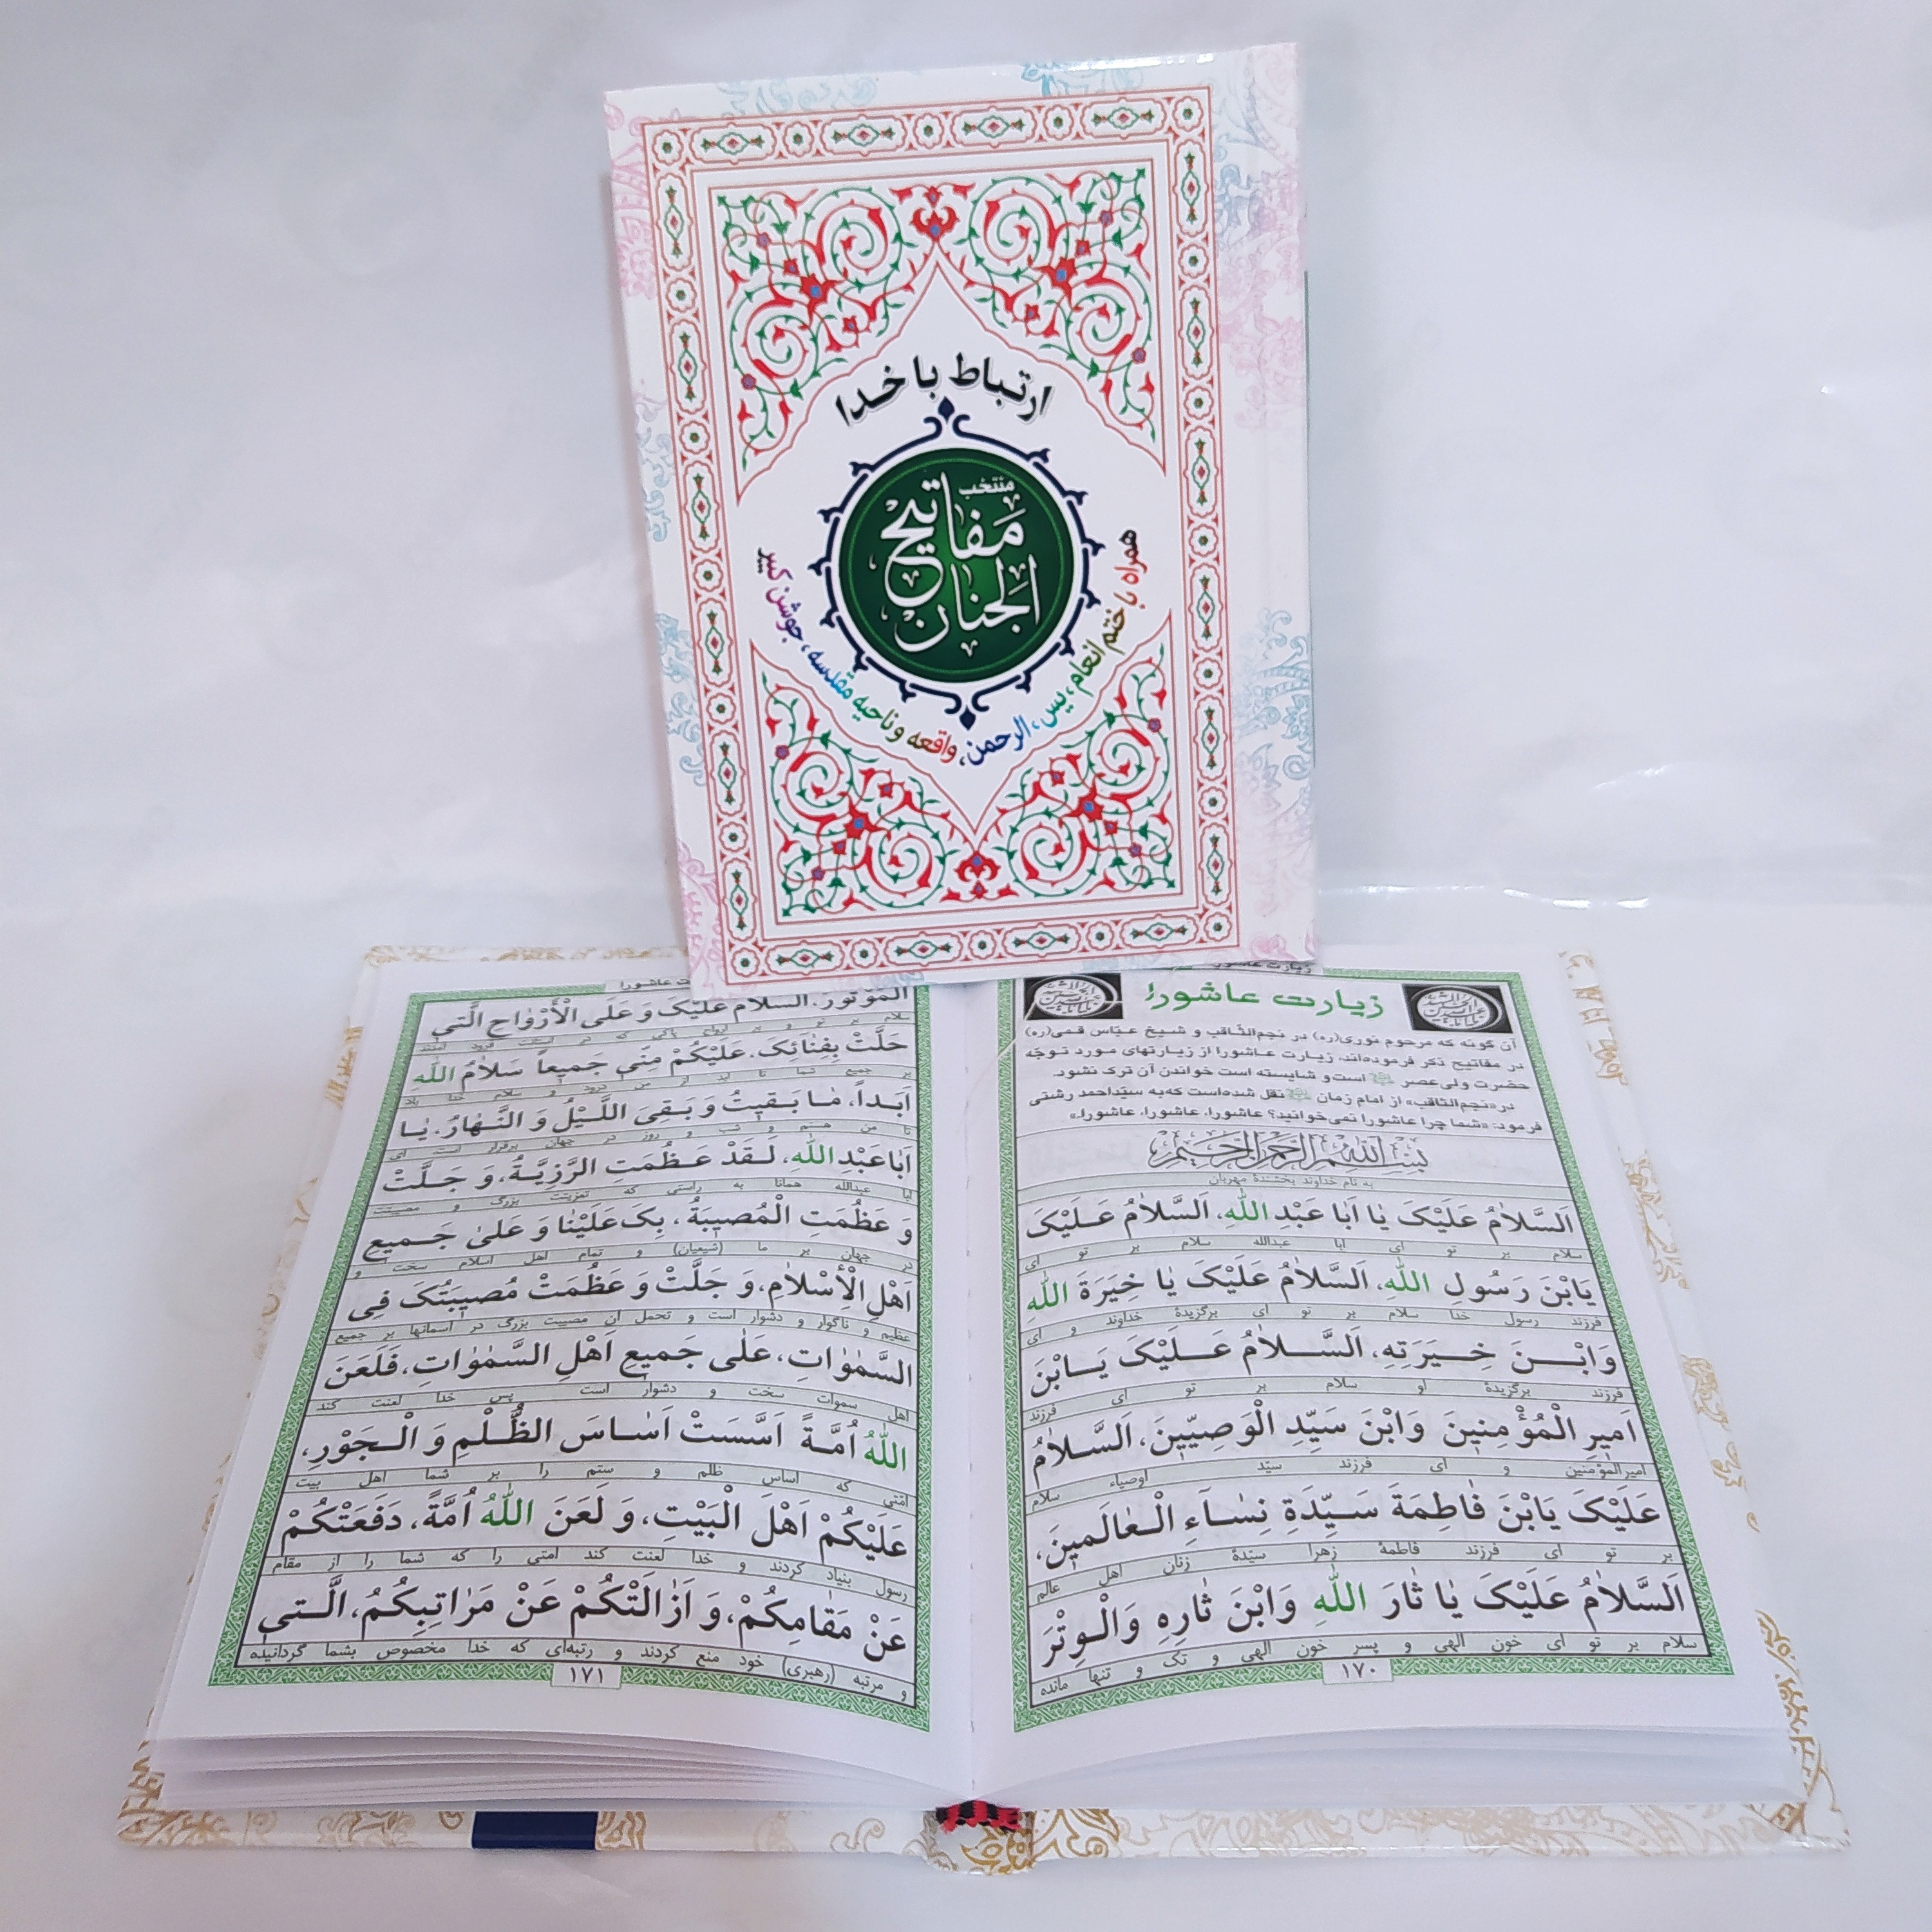 ارتباط با خدا
منتخب
مفاتیح
الجنان
همراه با ختم انعام، یس، الرحمن، واقعه و ناحیه مقدسه، جوشن کبیر
زیارت عاشورا
زیارت عاشورا
آن گونه که مرحوم نوری(ره) در نجم‌الثّاقب و شیخ عبّاس قمی(ره)
در مفاتیح ذکر فرموده‌اند، زیارت عاشورا از زیارتهای مورد توجّه
حضرت ولی‌عصر است و شایسته است خواندن آن ترک نشود.
در«نجم‌الثاقب» از امام زمان نقل شده‌است که‌به سیّداحمد رشتی
فرمود: «شما چرا عاشورا نمی‌خوانید؟ عاشورا، عاشورا، عاشورا.»
بِسْمِ اللهِ الرَّحْمٰنِ الرَّحِیْمِ
به نام خداوند بخشندهٔ مهربان
اَلسَّلاٰمُ عَلَیْکَ یٰا اَبا عَبْدِ اللّٰهِ، اَلسَّلاٰمُ عَـلَیْکَ
سلام بر تو ای ابا عبدالله سلام بر تو ای
یَابْنَ رَسُولِ اللّٰهِ، اَلسَّلاٰمُ عَلَیْکَ یٰا خِیَرَةَ اللّٰهِ
فرزند رسول خدا سلام بر تو ای برگزیدهٔ خداوند و ای
وَابْـنَ خِـیَرَتِهِ، اَلسَّـلاٰمُ عَـلَیْکَ یَـابْنَ
فرزند برگزیدهٔ او سلام بر تو ای فرزند
اَمیرِ الْمُؤْمِنینَ وَابْنَ سَیِّدِ الْوَصِیّینَ، اَلسَّـلاٰمُ
امیرالمؤمنین و ای فرزند سیّد اوصیاء سلام
عَلَیْکَ یَابْنَ فٰاطِمَةَ سَـیِّدَةِ نِسٰـآءِ الْـعٰالَمینَ،
بر تو ای فرزند فاطمهٔ زهرا سیّدهٔ زنان اهل عالم
اَلسَّلاٰمُ عَلَیْکَ یٰا ثٰارَ اللّٰهِ وَابْنَ ثٰارِهِ وَالْـوِتْرَ
سلام بر تو ای خون الهی و پسر خون الهی و تک و تنها مانده
۱۷۰
الْمَوْتُورَ، اَلسَّلاٰمُ عَلَیْکَ وَ عَلَی الْاَرْوٰاحِ الَّتی
سلام بر تو و بر ارواح پاکی که در آستانت فرود آمدند
حَلَّتْ بِفِنٰائِکَ، عَلَیْکُمْ مِنّی جَمیعاً سَلاٰمُ اللّٰهِ
بر جمیع شما تا ابد از من درود و سلام خدا باد
اَبَـداً، مٰـا بَـقیتُ وَ بَـقِیَ اللَّـیْلُ وَ النَّـهٰارُ، یٰـا
تا من هستم و شب و روز در جهان برقرار است. ای
اَبٰاعَبْدِ اللّٰهِ، لَـقَدْ عَـظُمَتِ الرَّزِیَّـةُ، وَ جَـلَّتْ
ابا عبدالله همانا به راستی که تعزیتت بزرگ و مصیبتت
وَ عَظُمَتِ الْمُصیبَةُ، بِکَ عَلَیْنٰا وَ عَلیٰ جَـمیعِ
در جهان بر ما (شیعیان) و تمام اهل اسلام سخت و
اَهْلِ الْاِسْلاٰمِ، وَ جَلَّتْ وَ عَظُمَتْ مُصیبَتُکَ فِی
عظیم و ناگوار و دشوار است و تحمل آن مصیبت بزرگ در آسمانها بر جمیع
السَّمٰوٰاتِ، عَلٰی جَمیعِ اَهْلِ السَّمٰوٰاتِ، فَلَعَنَ
اهل سموات سخت و دشوار است پس خدا لعنت کند
اللّٰهُ اُمَّـةً اَسَّسَتْ اَسٰـاسَ الظُّـلْمِ وَ الْـجَوْرِ،
امّتی که اساس ظلم و ستم را بر شما اهل بیت
عَلَیْکُمْ اَهْلَ الْبَیْتِ، وَ لَعَنَ اللّٰهُ اُمَّةً، دَفَعَتْکُمْ
رسول بنیاد کردند و خدا لعنت کند امتی را که شما را از مقام
عَنْ مَقٰامِکُمْ، وَ اَزٰالَتْکُمْ عَنْ مَرٰاتِبِکُمُ، الَّـتی
و مرتبه (رهبری) خود منع کردند و رتبه‌ای که خدا مخصوص بشما گردانیده
۱۷۱